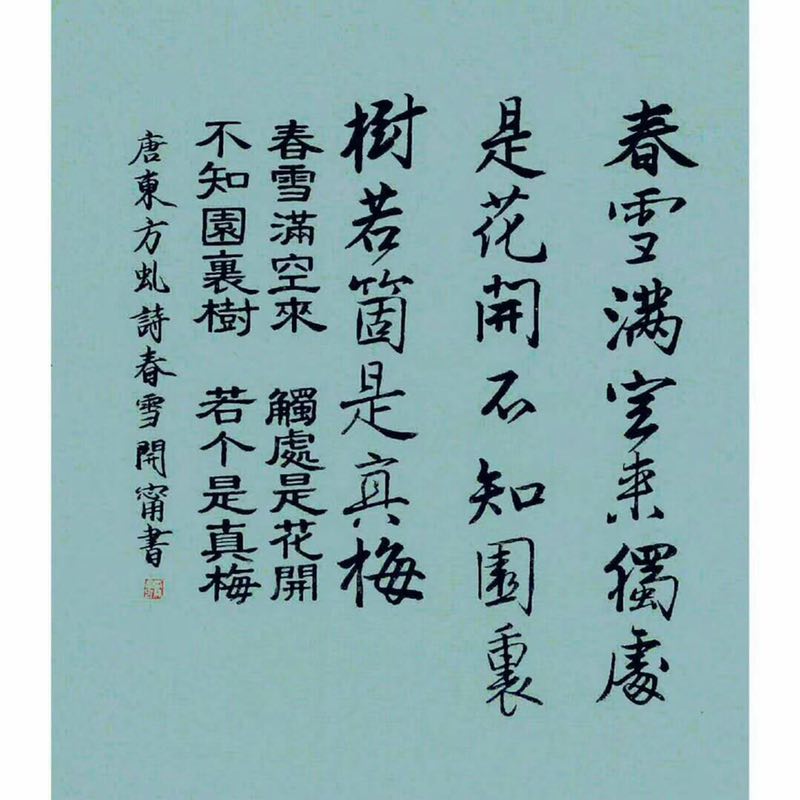 春雪满空来獨處
是花開不知園裏
樹若箇是真梅
春雪滿空來 觸處是花開
不知園裏樹 若个是真梅
唐東方虬詩春雪開甯書